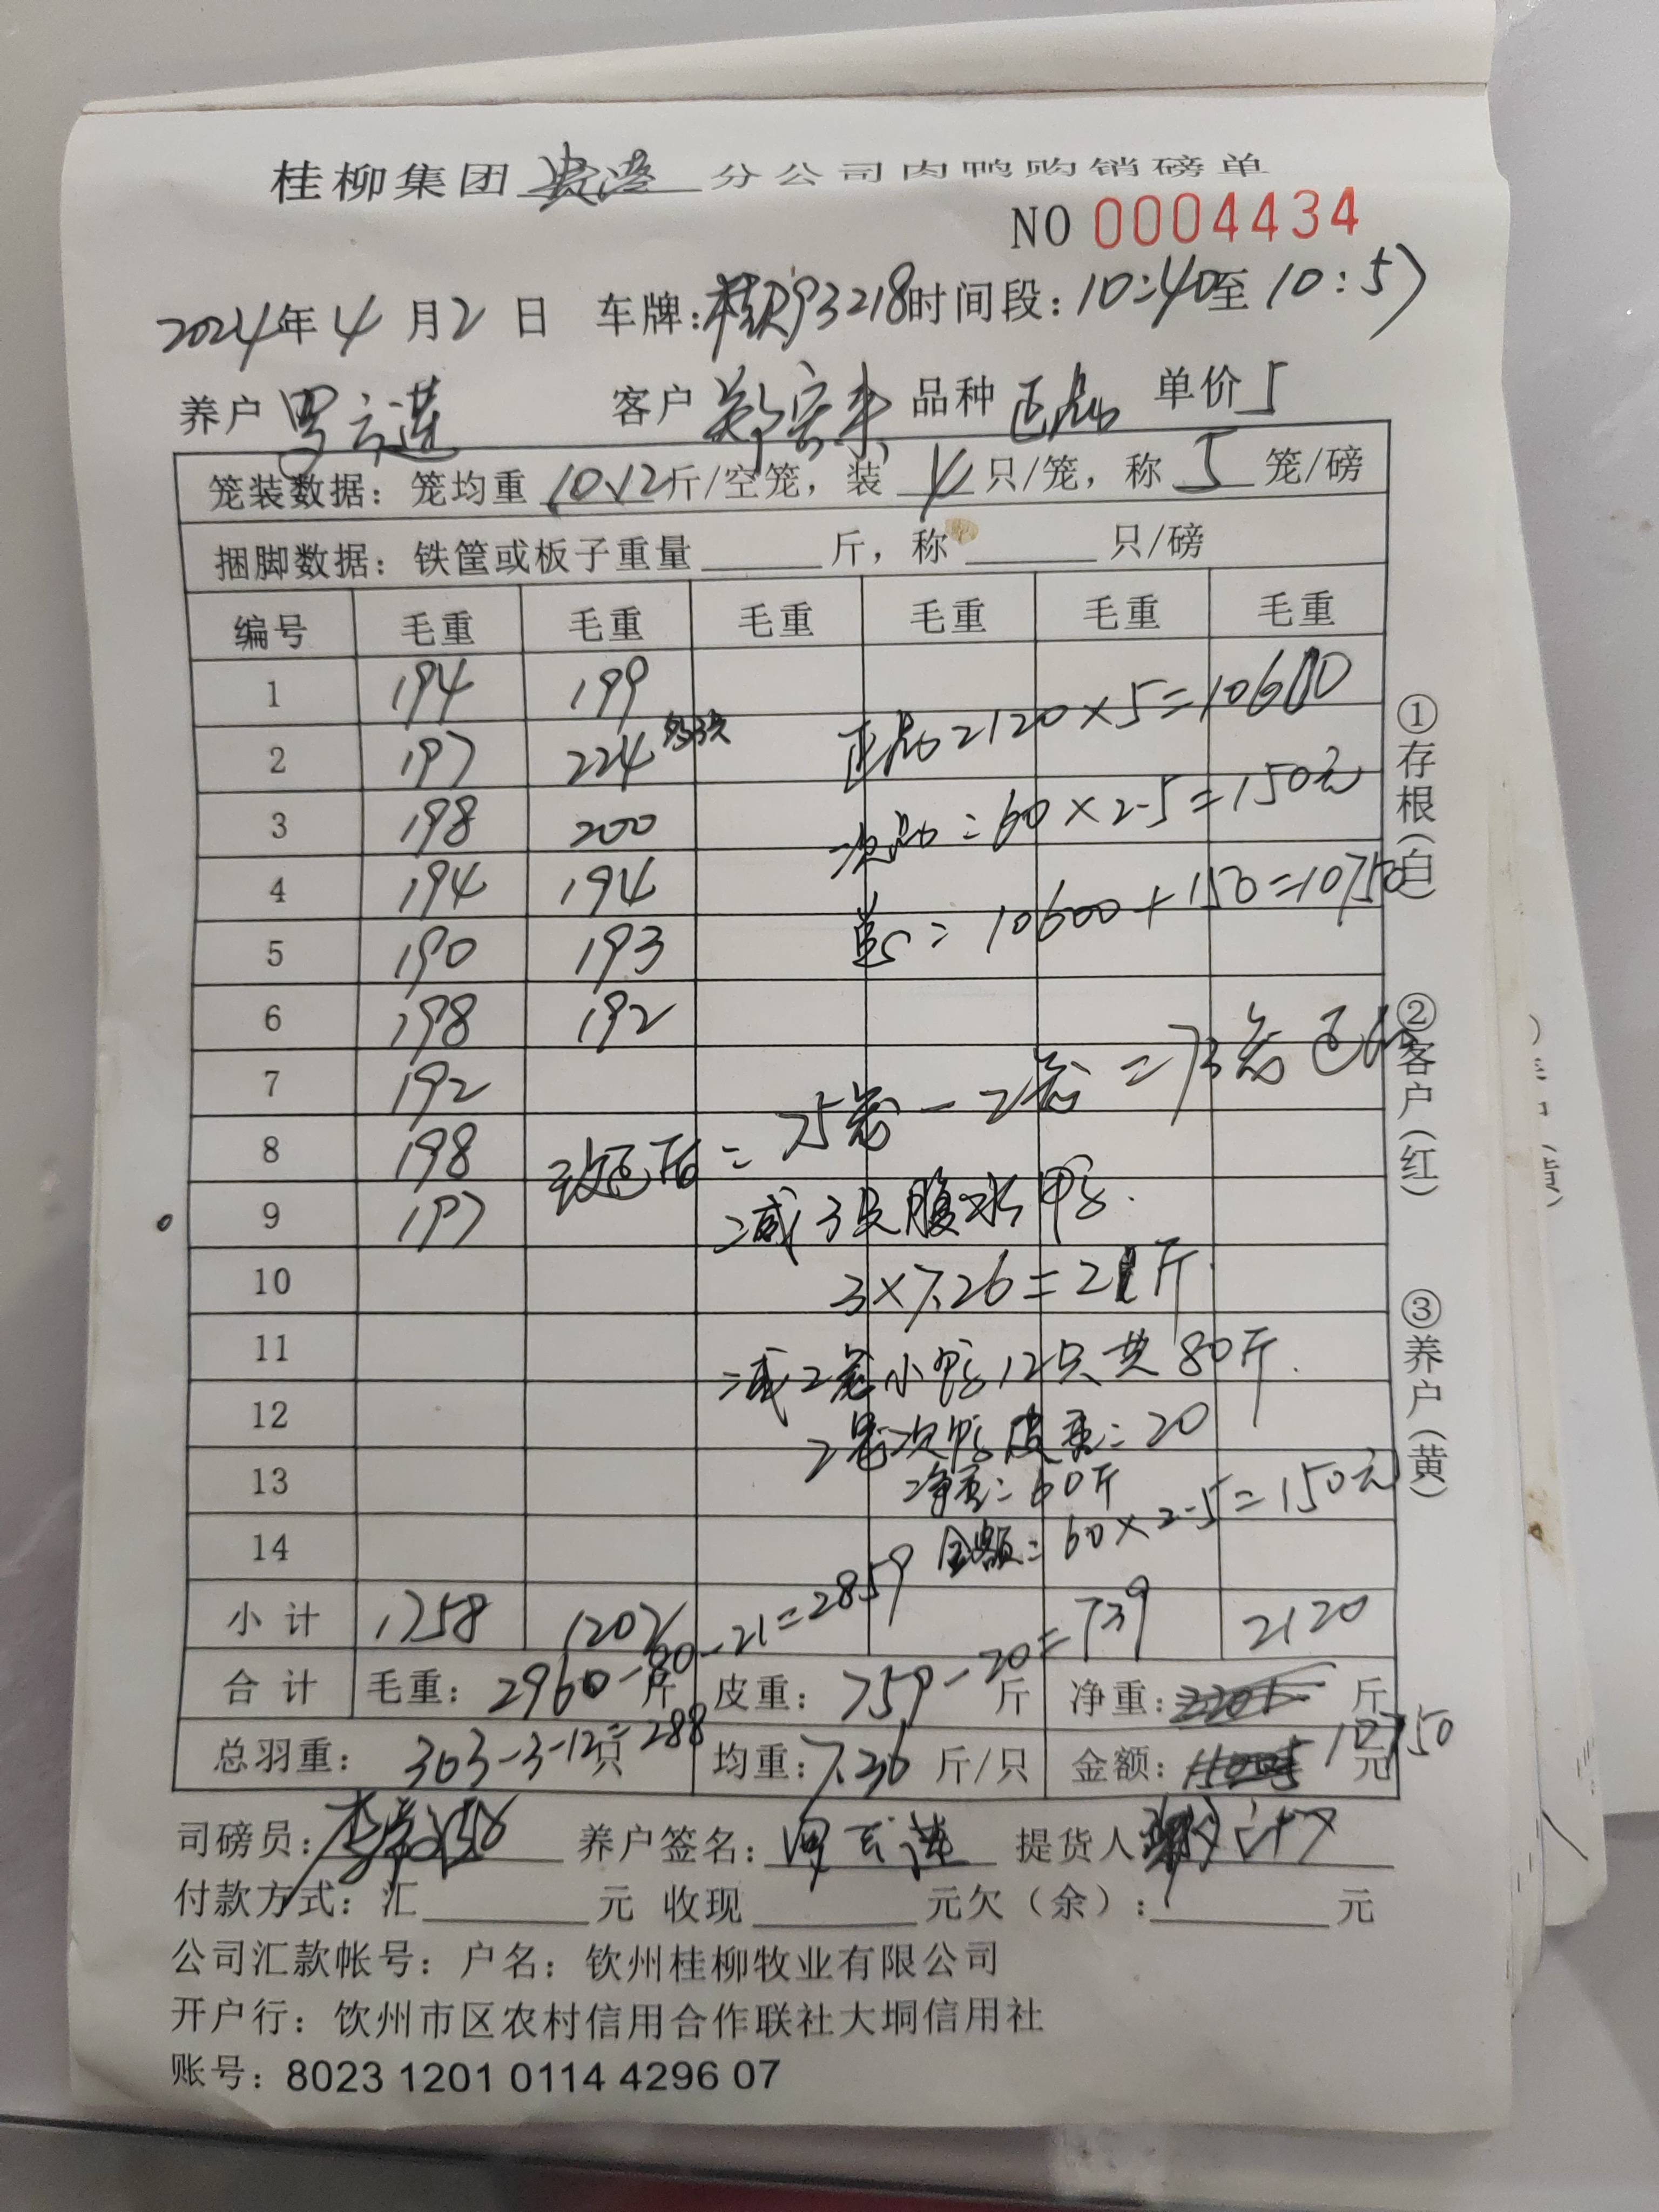 桂柳集团 贵港 分公司肉鸭购销磅单
NO 0004434
2024年4月2日 车牌: 93218 时间段: 10:40至10:57
养户 罗云莲 客户 郑宏来 品种 正品 单价 5
笼装数据: 笼均重 10.12 斤/空笼, 装 4 只/笼, 称 5 笼/磅
捆脚数据: 铁筐或板子重量 斤, 称 只/磅
编号 毛重 毛重 毛重 毛重 毛重 毛重
1 194 199
正品2120×5=10600
2 197 224
3 198 200
次品=60×2.5=150元
4 194 194
总=10600+150=10750
5 190 193
6 198 192
7 192
=75笼-2笼=73笼
8 198
9 197
减3只腹水鸭.
10
3×7.26=21斤.
11
减2笼小鸭12只共80斤.
12
2笼次鸭皮重=20
13
净重=60斤
14
金额=60×2.5=150元
小计 1758 1202 2120
合计 毛重: 2960-80-21=2859 斤 皮重: 759-20=739 斤 净重: 斤
总羽重: 303-3-12=288 只 均重: 7.36 斤/只 金额: 10750 元
司磅员: 养户签名: 罗云莲 提货人
付款方式: 汇 元 收现 元欠(余): 元
公司汇款帐号: 户名: 钦州桂柳牧业有限公司
开户行: 钦州市区农村信用合作联社大垌信用社
账号: 8023 1201 0114 4296 07
①存根(白)
②客户(红)
③养户(黄)